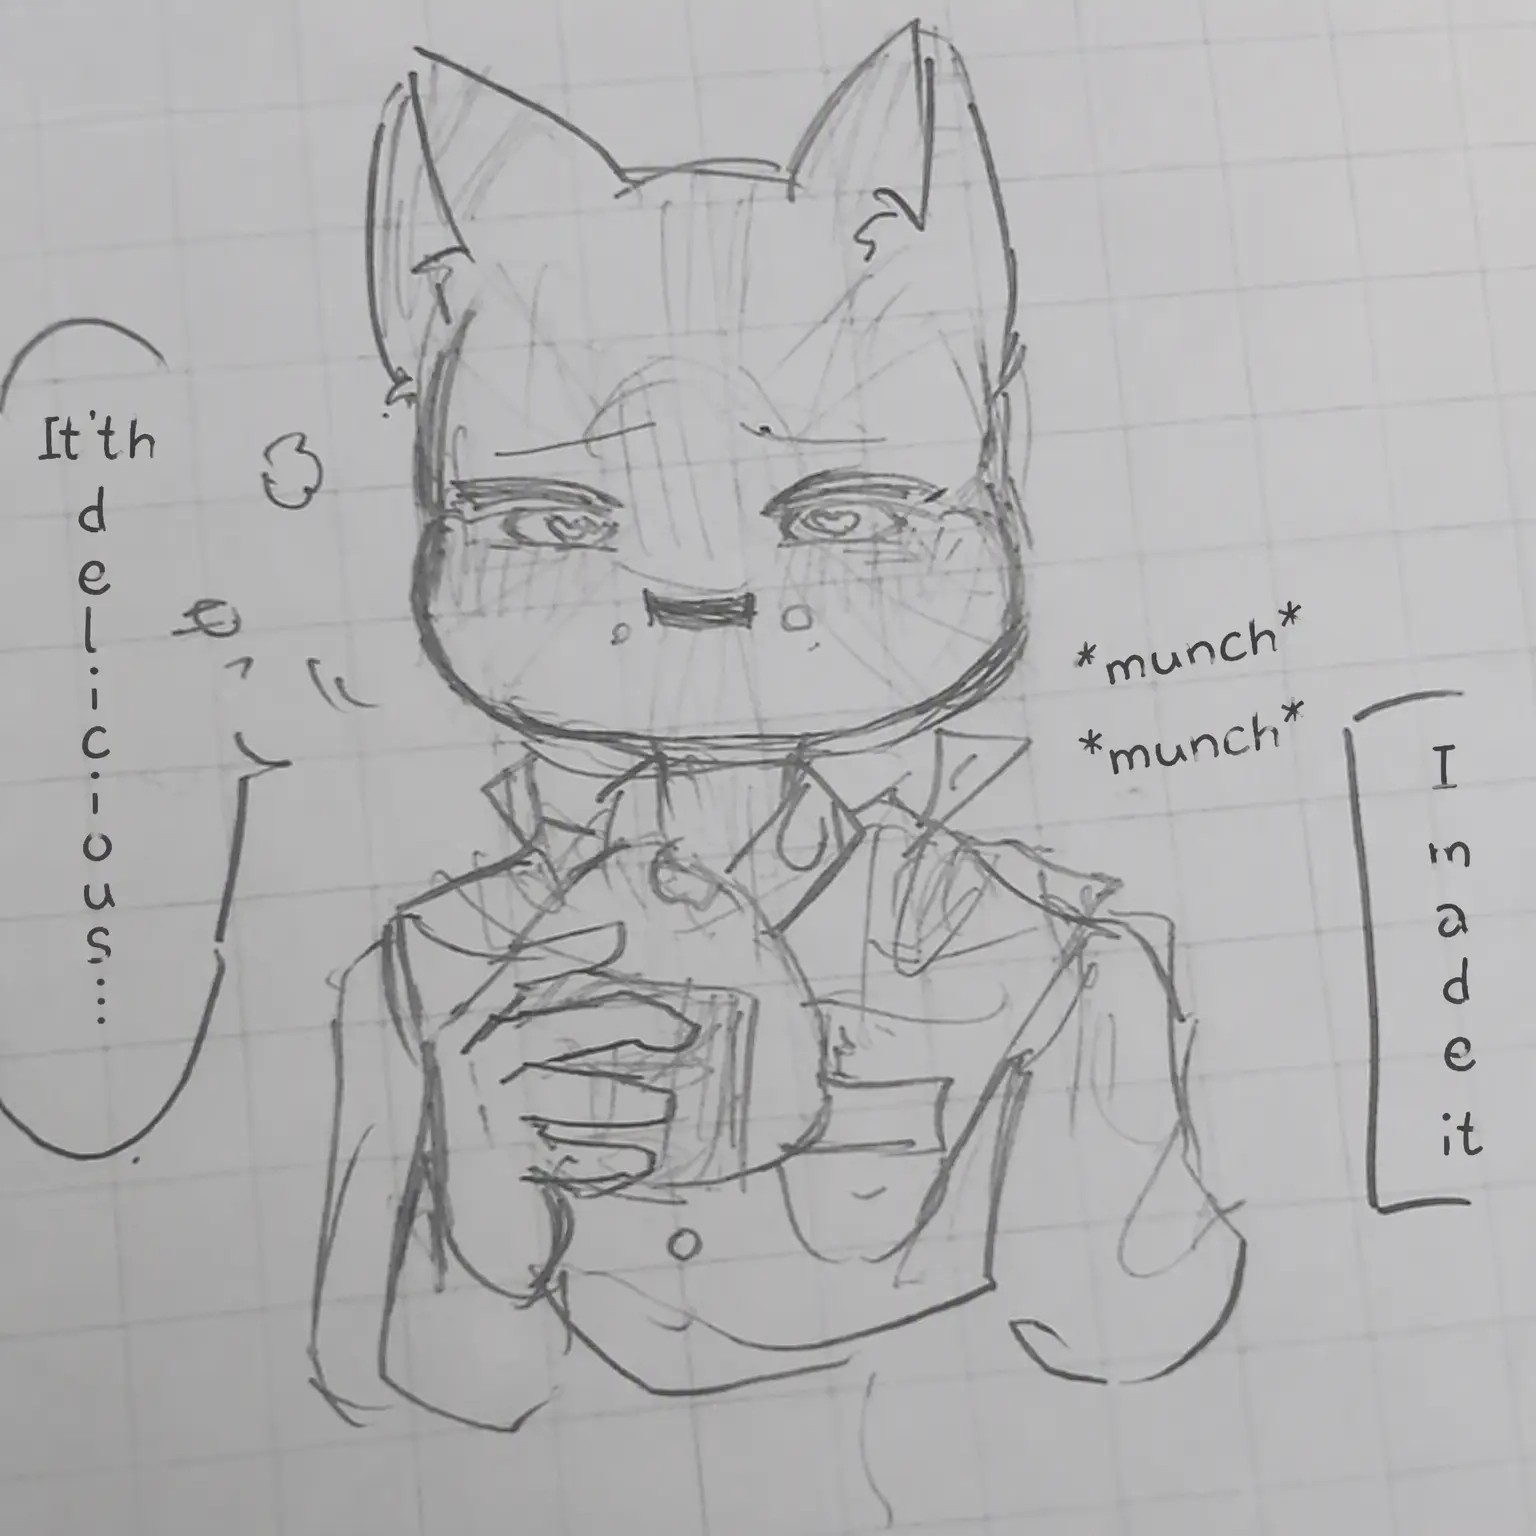 It'th
delicious...
*munch*
*munch*
I
made
it